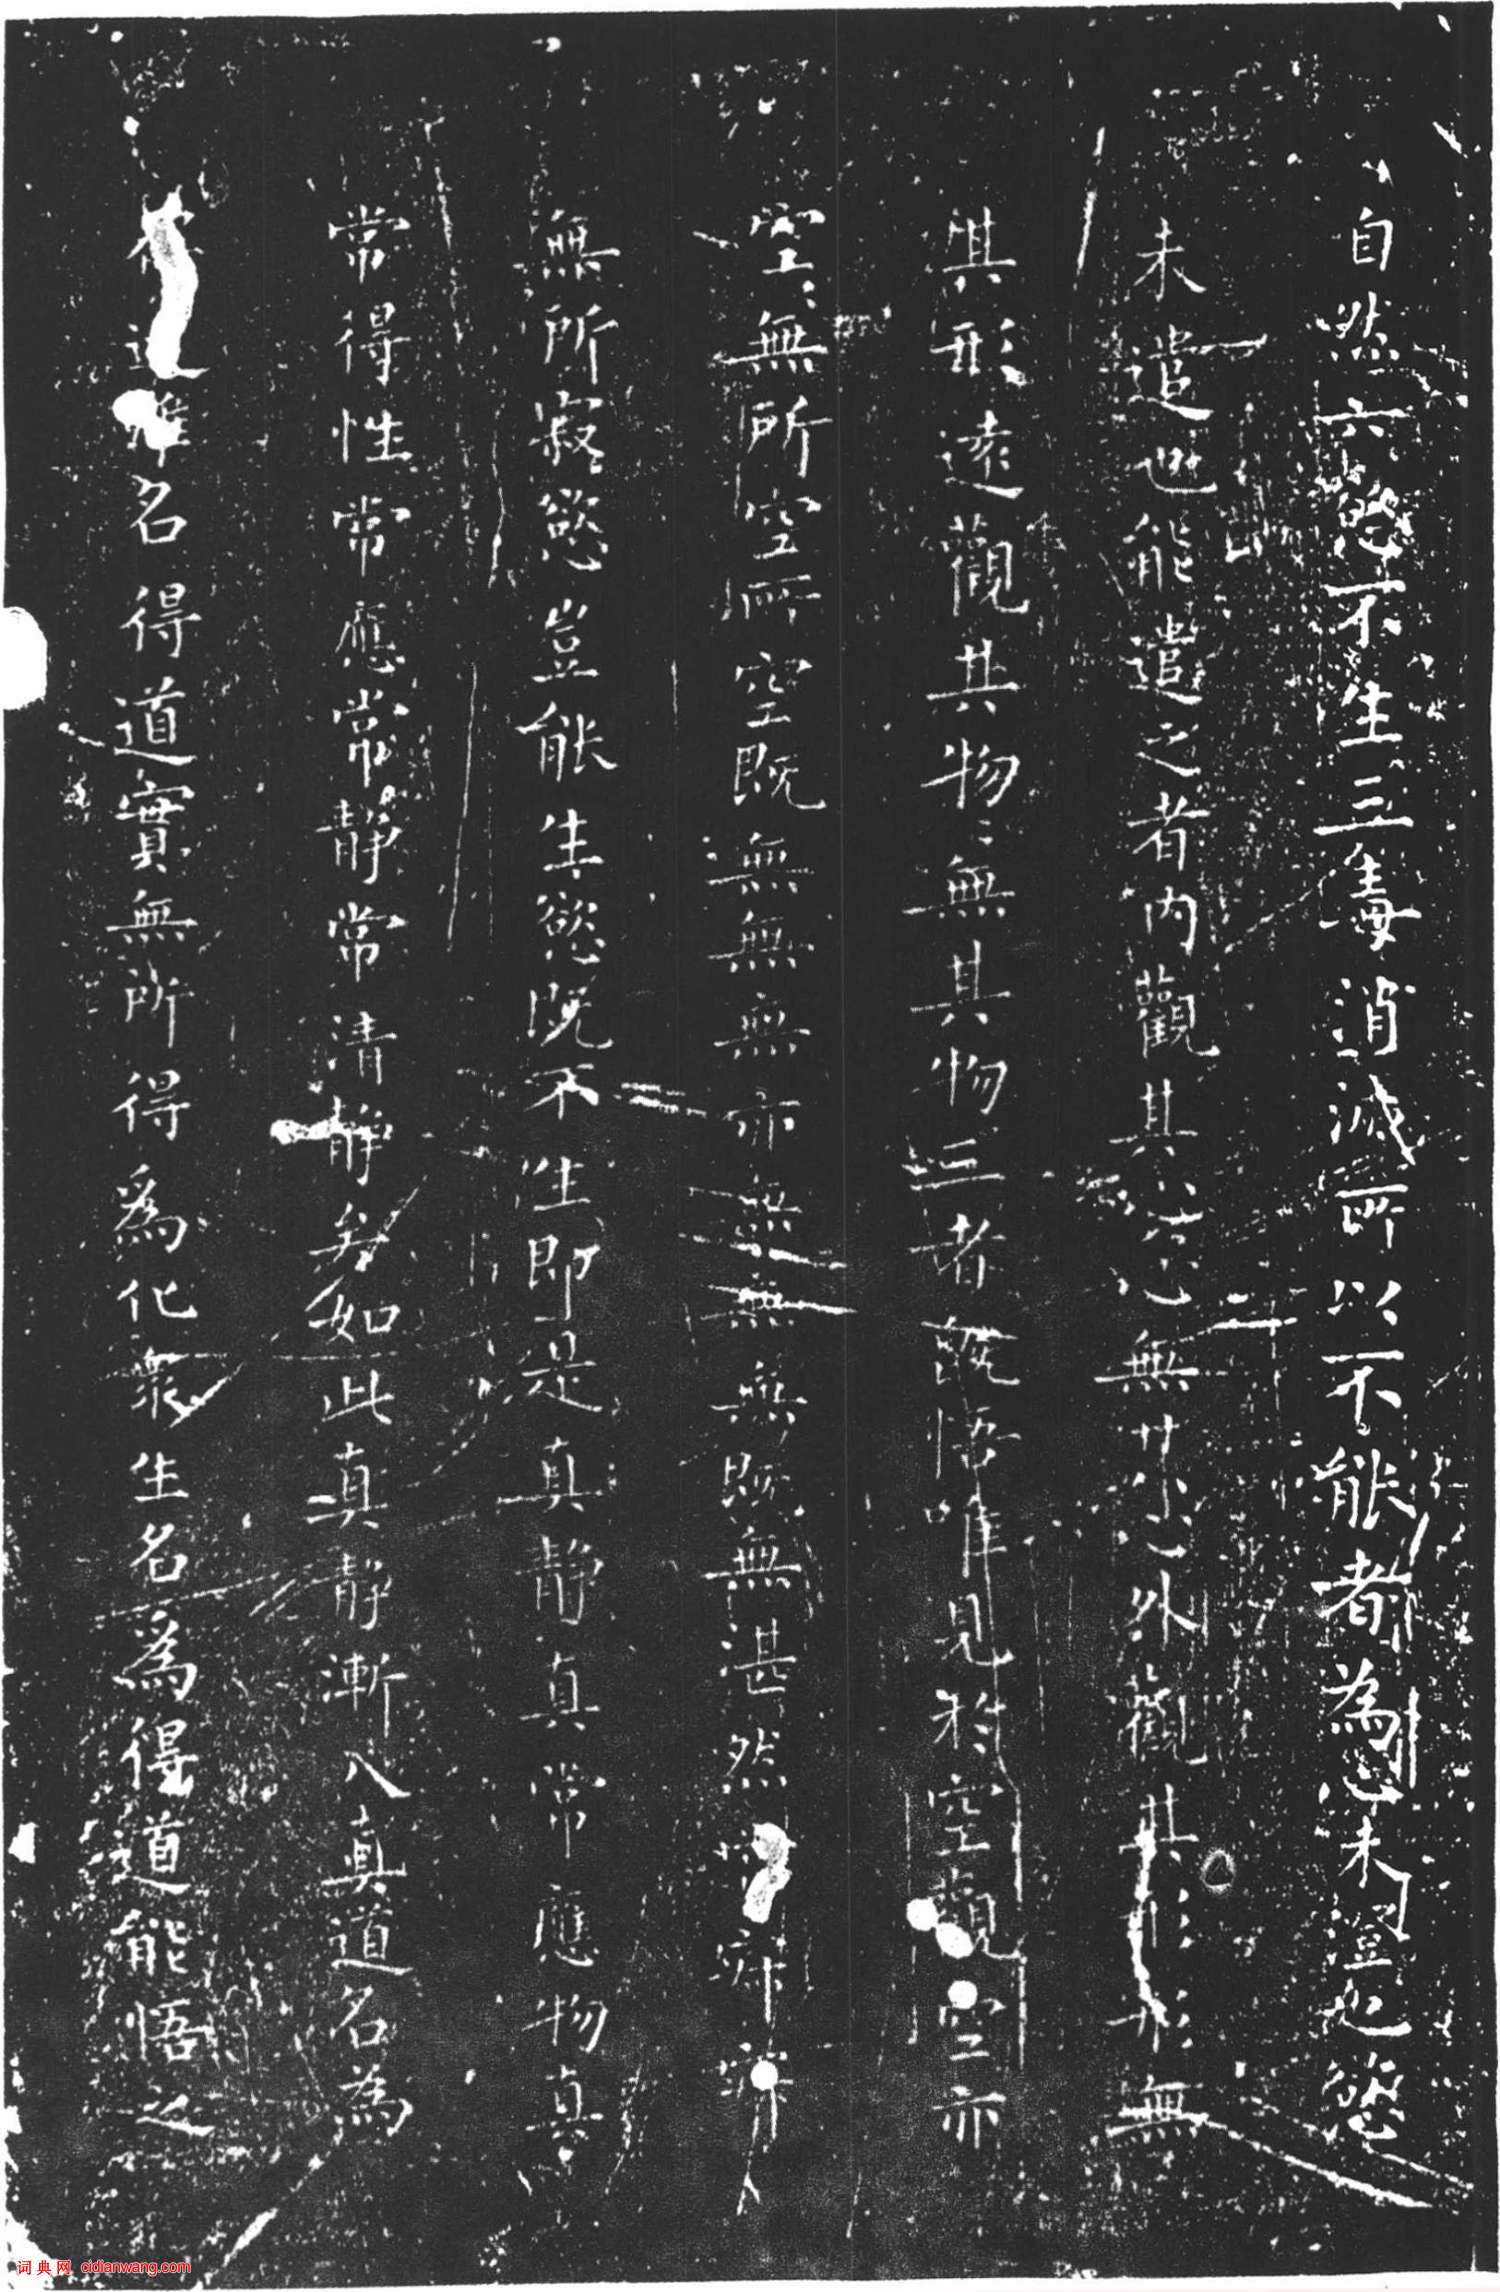 自然六慾不生三毒消滅所以不能者為心未澄也慾
未遣也能遣之者內觀其心心無其心外觀其形形無
其形遠觀其物物無其物三者既悟唯見於空觀空亦
空空無所空所空既無無無亦無無無既無湛然常寂寂
無所寂慾豈能生慾既不生即是真靜真常應物真
常得性常應常静常清静矣如此真静漸入真道名為
得道雖名得道實無所得為化衆生名為得道能悟之
词典网 cidianwang.com